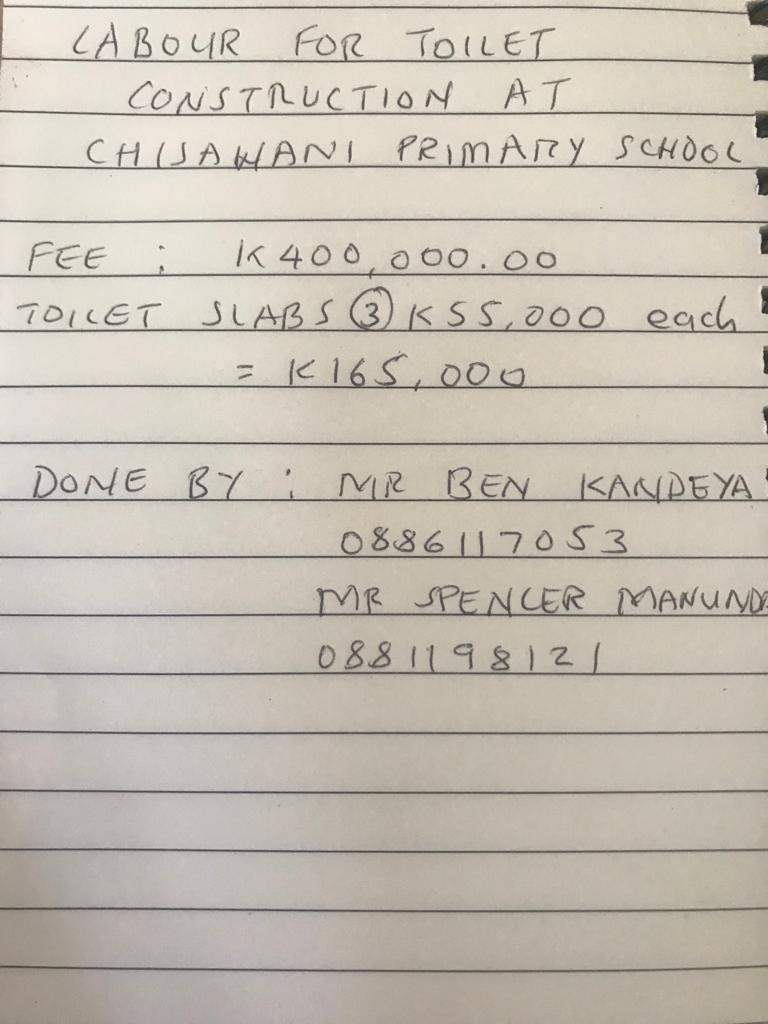 LABOUR FOR TOILET
CONSTRUCTION AT
CHISAWANI PRIMARY SCHOOL
FEE : K400,000.00
TOILET SLABS ③ K55,000 each
= K165,000
DONE BY : MR BEN KANDEYA
0886117053
MR SPENCER
0881198121